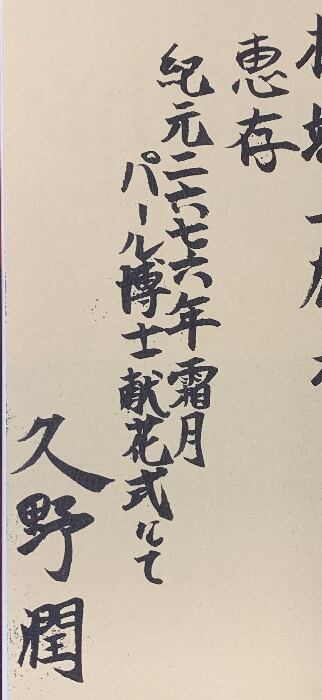 惠存
紀元二六七六年霜月
パール博士献花式にて
久野潤